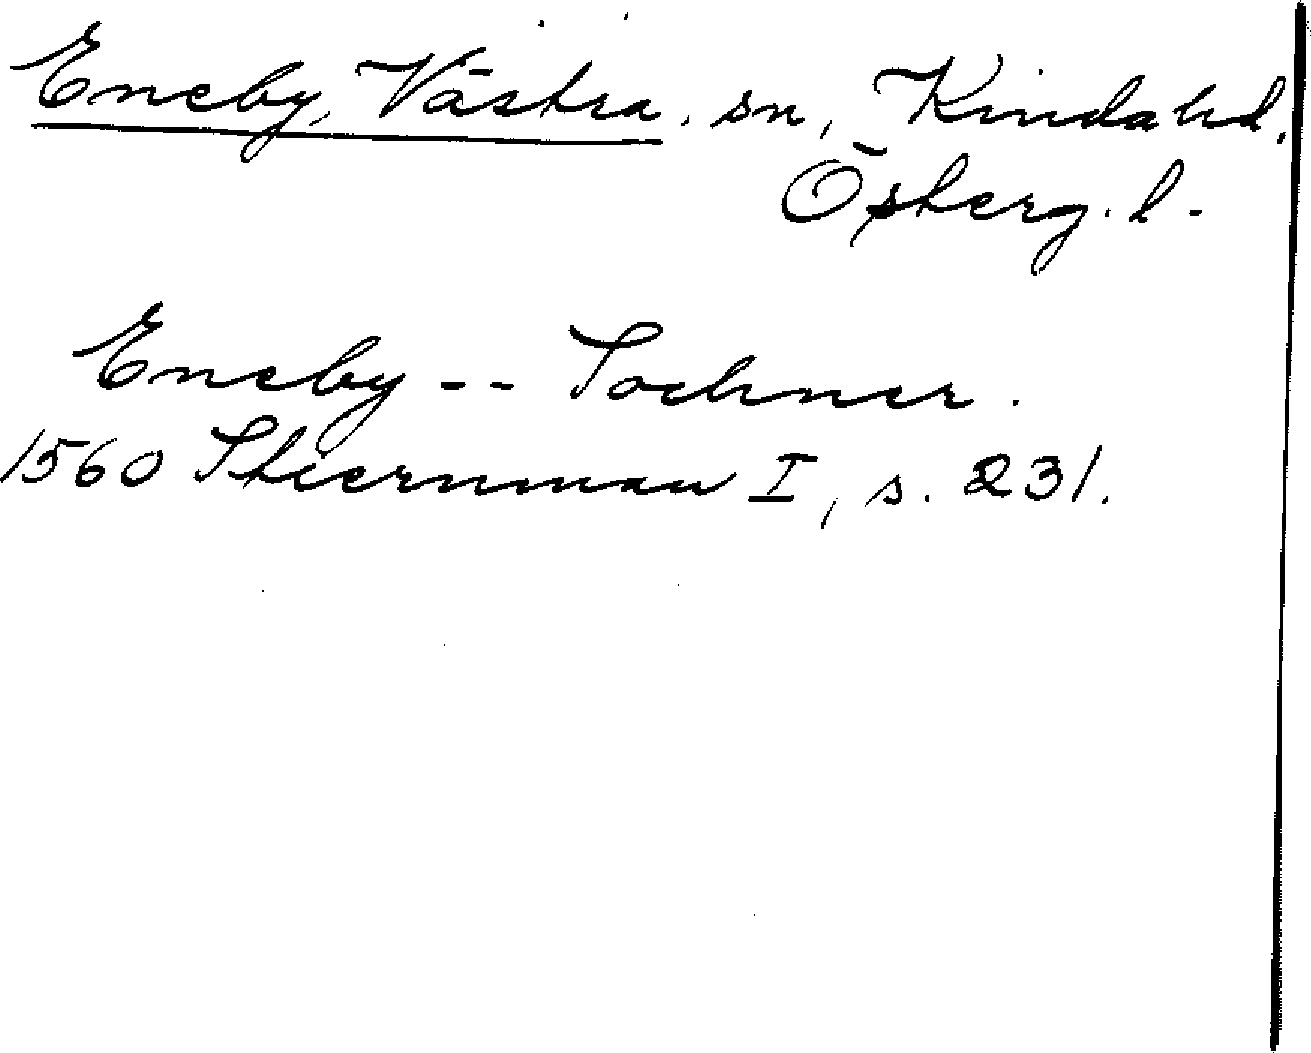 Eneby, Västra, sn, Kinda hd,
Österg. l.
Eneby -- Sochner.
1560 Stiernman I, s. 231.